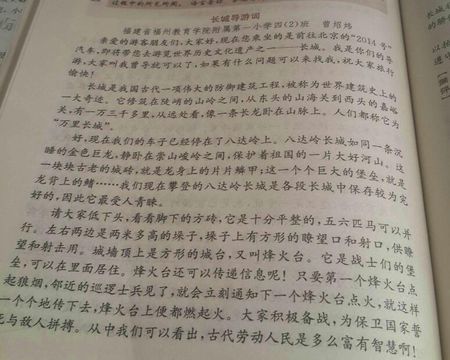 长城导游词
福建省福州教育学院附属第一小学四(2)班 曾炤炜
亲爱的游客朋友们,大家好,现在您乘坐的是前往北京的“2014号”
汽车,即将带您去游览世界历史文化遗产之一——长城。我是你们的导
游,大家叫我曾导就可以了,如果有什么问题可以来找我,祝大家旅行
愉快!
长城是我国古代一项伟大的防御建筑工程,被称为世界建筑史上的
一大奇迹。它修筑在陡峭的山岭之间,从东头的山海关到西头的嘉峪
关,有一万三千多里,从远处看,像一条长龙卧在山脉上。人们都称它为
“万里长城”。
好,现在我们的车子已经停在了八达岭上。八达岭长城如同一条沉
睡的金色巨龙,静卧在崇山峻岭之间,保护着祖国的一片大好河山。这
一块块古老的城砖,就是龙身上的片片鳞甲;这一个个巨大的堡垒,就是
龙背上的鳍……我们现在攀登的八达岭长城是各段长城中保存较为完
好的,因此它最受人青睐。
请大家低下头,看看脚下的方砖,它是十分平整的,五六匹马可以并
行。左右两边是两米多高的垛子,垛子上有方形的瞭望口和射口,供瞭
望和射击用。城墙顶上是方形的城台,又叫烽火台。它是战士们的堡
垒,可以在里面居住。烽火台还可以传递信息呢!只要第一个烽火台点
起狼烟,邻近的巡逻士兵见了,就会立刻通知下一个烽火台点火,就这样
一个个地传下去,烽火台上便都燃起火。大家积极备战,为保卫国家誓
死与敌人拼搏。从中我们可以看出,古代劳动人民是多么富有智慧啊!